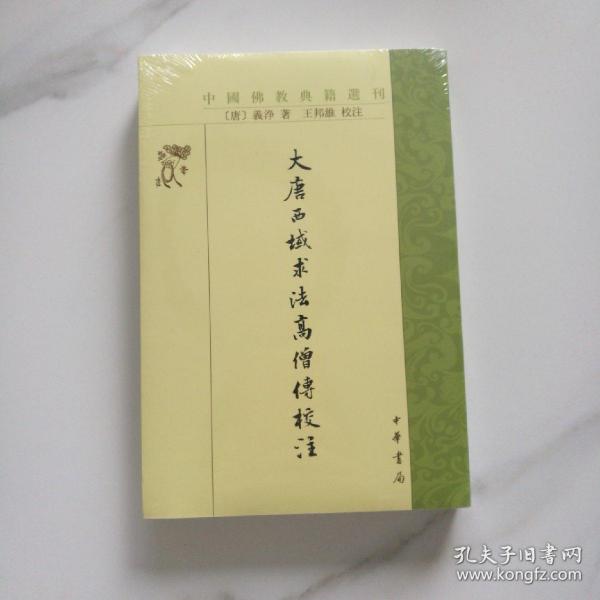 中國佛教典籍選刊
〔唐〕義淨 著 王邦維 校注
大唐西域求法高僧傳校注
中華書局
孔夫子旧书网
www.kongfz.com